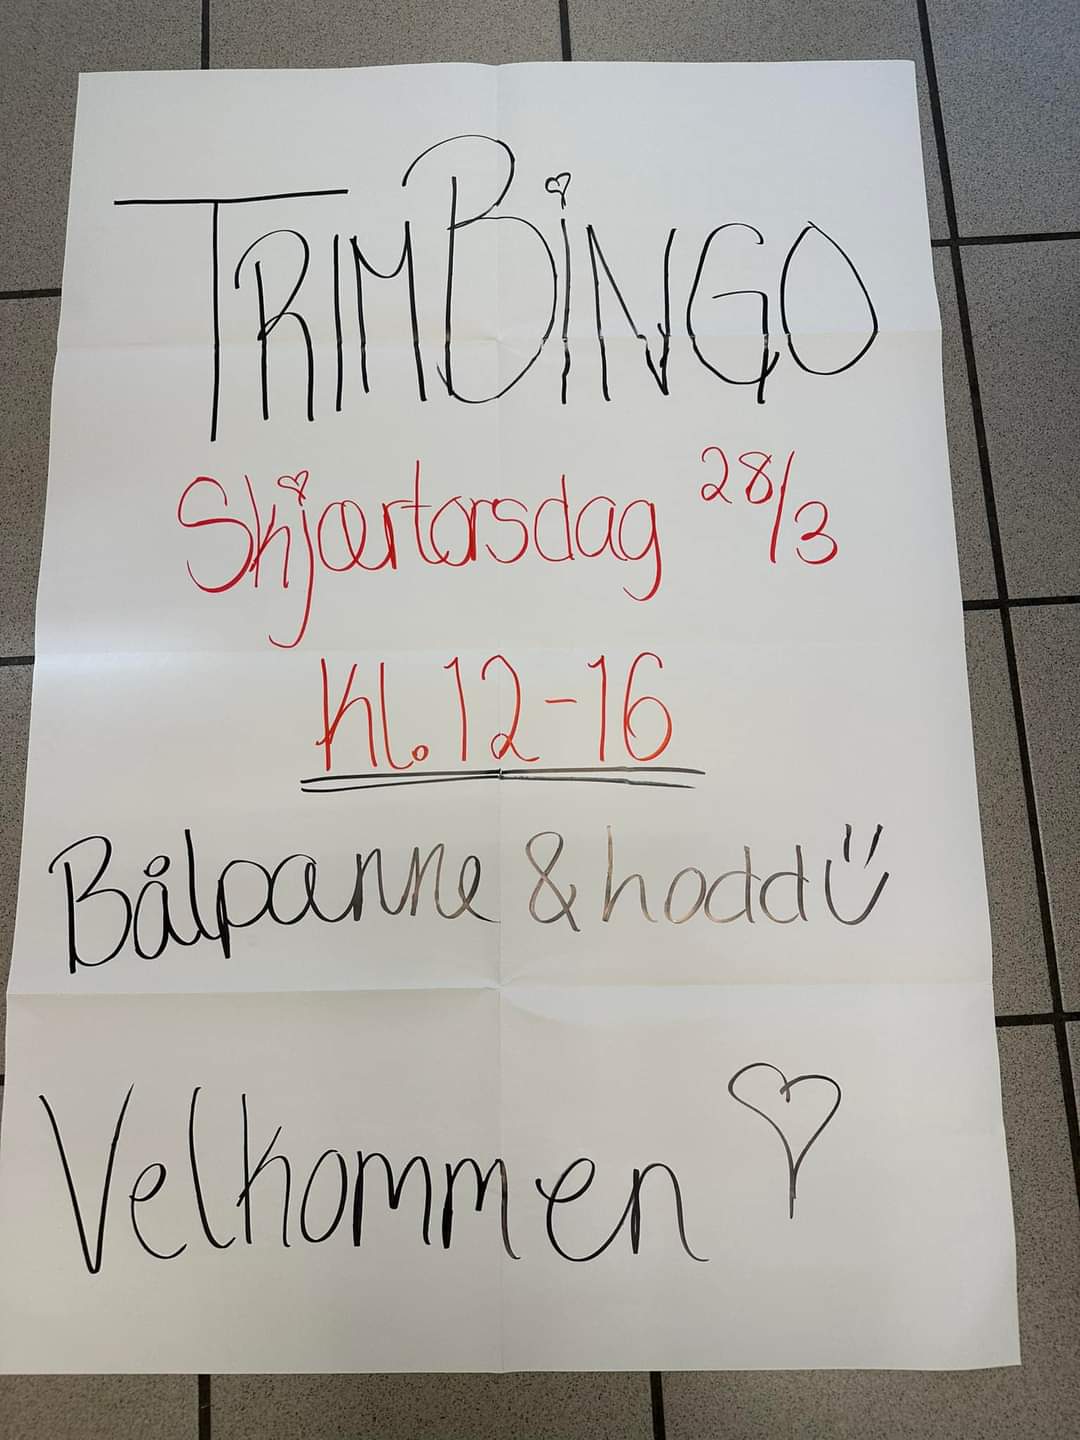 TRIMBINGO
Skjærtorsdag 28/3
Kl. 12-16
Bålpanne & hodd
Velkommen